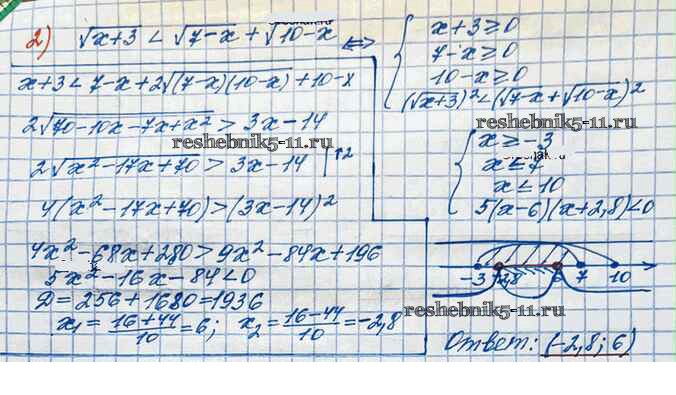 2) √x+3 < √7-x + √10-x <=>
x+3 < 7-x+2√(7-x)(10-x)+10-x
2√70-10x-7x+x² > 3x-14
2√x²-17x+70 > 3x-14 |↑2
4(x²-17x+70)>(3x-14)²
4x²-68x+280>9x²-84x+196
5x²-16x-84<0
D=256+1680=1936
x₁=16+44/10=6; x₂=16-44/10=-2,8
x+3≥0
7-x≥0
10-x≥0
(√x+3)²<(√7-x+√10-x)²
reshebnik5-11.ru
x≥-3
x≤7
x≤10
5(x-6)(x+2,8)<0
reshebnik5-11.ru
-3 -2,8 6 7 10
reshebnik5-11.ru
Ответ: (-2,8; 6)